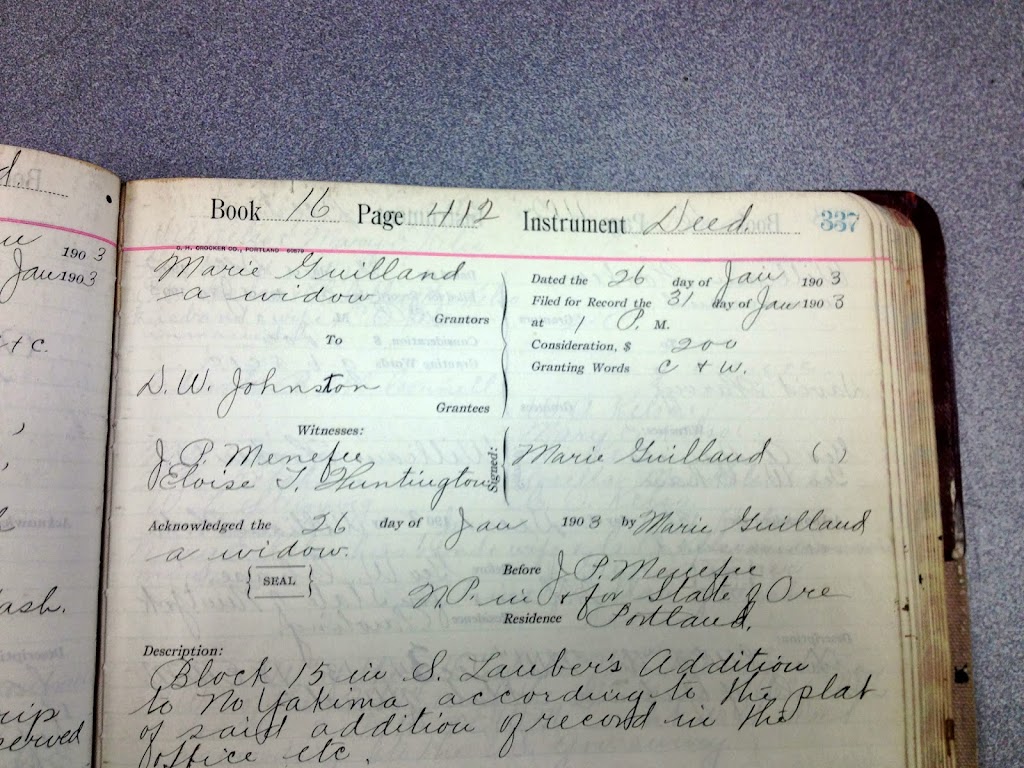 Book 16 Page 412 Instrument Deed. 337
C. H. CROCKER CO., PORTLAND 60679
Marie Guilland
a widow
Grantors
To
D. W. Johnston
Grantees
Dated the 26 day of Jan 1903
Filed for Record the 31 day of Jan 1903
at 1 P. M.
Consideration, $ 200
Granting Words C & W.
Witnesses:
J. P. Menefee
Eloise T. Huntington
Signed:
Marie Guilland ( )
Acknowledged the 26 day of Jan 1903 by Marie Guilland
a widow.
SEAL
Before J. P. Menefee
N. P. in & for State of Ore
Residence Portland.
Description:
Block 15 in S. Lauber's Addition
to No Yakima according to the plat
of said addition of record in the
office etc.
d.
1903
Jan 1903
& C.
ash.
rip
served